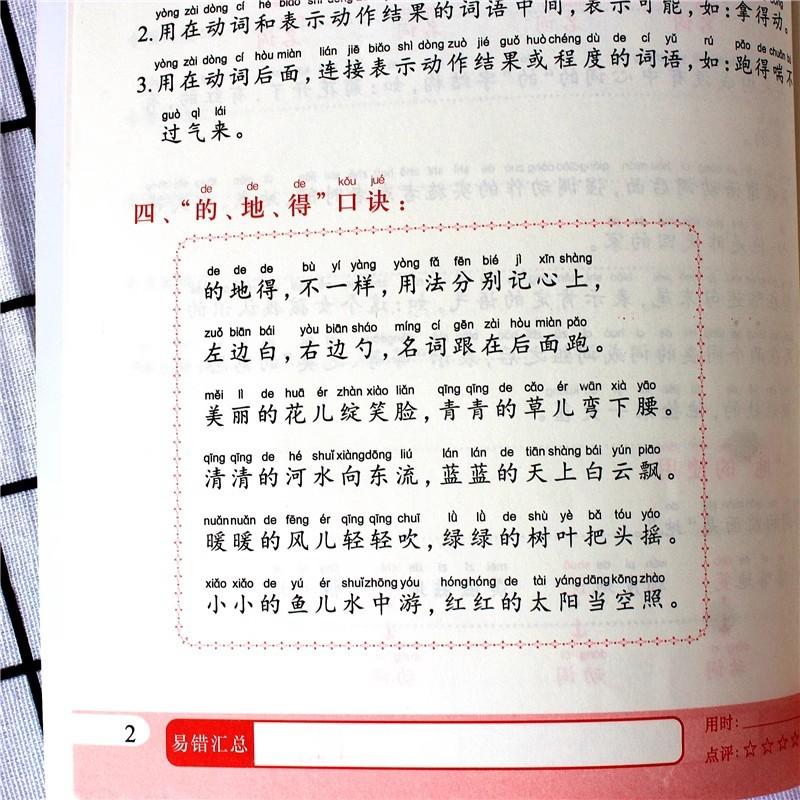 yòng zài dòng cí hé biǎo shì dòng zuò jié guǒ de cí yǔ zhōng jiān, biǎo shì kě néng rú ná dé dòng
2.用在动词和表示动作结果的词语中间,表示可能,如:拿得动。
yòng zài dòng cí hòu miàn lián jiē biǎo shì dòng zuò jié guǒ huò chéng dù de cí yǔ rú pǎo de chuǎn bú
3.用在动词后面,连接表示动作结果或程度的词语,如:跑得喘不
guò qì lái
过气来。
de de de kǒu jué
四、“的、地、得”口诀:
de de de bù yí yàng yòng fǎ fēn bié jì xīn shàng
的地得,不一样,用法分别记心上,
zuǒ biān bái yòu biān sháo míng cí gēn zài hòu miàn pǎo
左边白,右边勺,名词跟在后面跑。
měi lì de huā ér zhàn xiào liǎn qīng qīng de cǎo ér wān xià yāo
美丽的花儿绽笑脸,青青的草儿弯下腰。
qīng qīng de hé shuǐ xiàng dōng liú lán lán de tiān shàng bái yún piāo
清清的河水向东流,蓝蓝的天上白云飘。
nuǎn nuǎn de fēng ér qīng qīng chuī lǜ lǜ de shù yè bǎ tóu yáo
暖暖的风儿轻轻吹,绿绿的树叶把头摇。
xiǎo xiǎo de yú ér shuǐ zhōng yóu hóng hóng de tài yáng dāng kōng zhào
小小的鱼儿水中游,红红的太阳当空照。
2 易错汇总
用时:
点评:☆☆☆☆